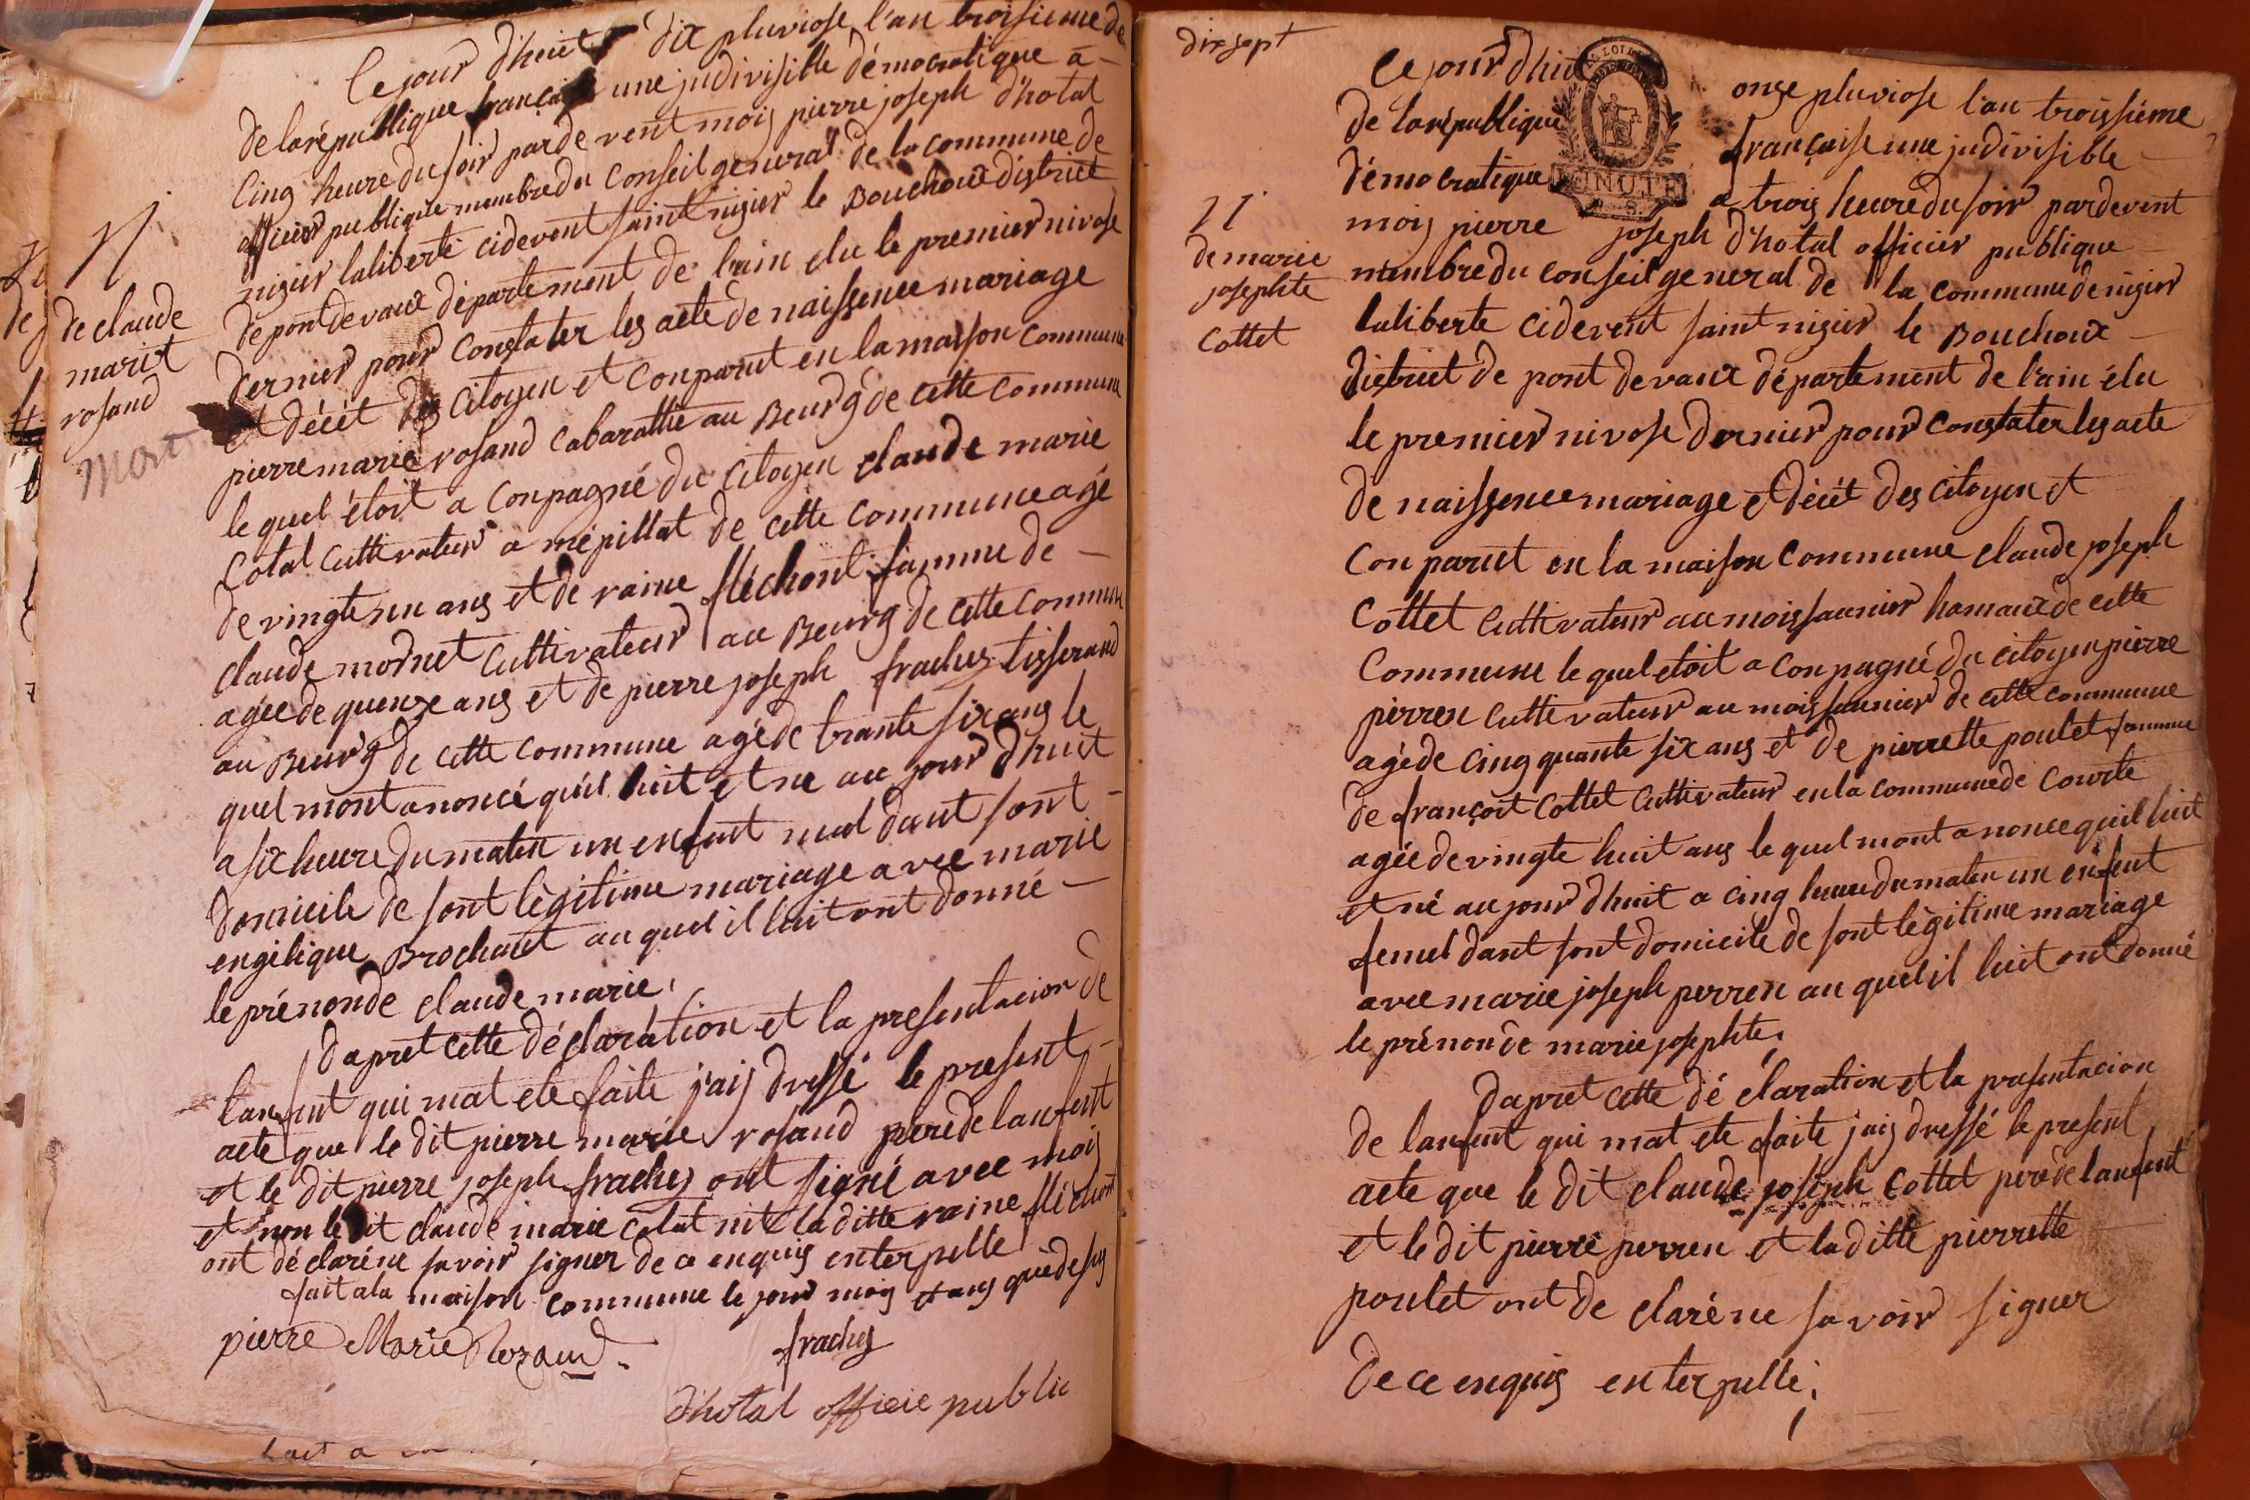 N.
de claude
marit
rosand
Mort
Ce jour d'huit dix pluviose l'an troisieme de
de la république française une judivisible démocratique a
cinq heure du soir par de vent mois pierre joseph d'hotal
officier publique membre du conseil general de la commune de
nizier laliberté cidevent saint nizier le Bouchoux district
de pont de vaux département de l'ain elu le premier nivose
dernier pour constater les acte de naissence mariage
et décèt des citoyen et conparut en la maison commune
pierre marie rosand cabarattie au Beurg de cette commune
le quel étoit a conpagné du citoyen claude marie
Cotal cultivateur a mépillat de cette commune agé
de vingte un ans et de raine fléchont famme de
claude mornet cultivateur au Beurg de cette commune
agée de quenze ans et de pierre joseph frachus tisserand
au Beurg de cette commune agé de trante six ans le
quel mont anoncé quil luit et ne au jour d'huit
a six heure du maten un enfant mal dant sont
domicile de sont lègitime mariage avec marie
engélique Brochant au quel il luit ont donné
le prénon de claude marie,
dapret cette déclaration et la presentacion de
lanfent qui mat ete faite j'aij dressé le present
acte que le dit pierre marie rosand pere de lanfent
et le dit pierre joseph frachus ont signé avec mois
et non le dit claude marie cotat nit la ditte raine fléchont
ont déclaré ne savoir signer de ce enquis enterpelle
fait a la maison commune le jour mois et ans que desus
pierre Marie Rozand
frachus
d'hotal officie public
dix sept
N
de marie
josephte
Cottet
MINUTE
Ce jour d'huit onze pluviose l'an troissiéme
de la république française une judivisible
démocratique a trois heure du soir par devent
mois pierre joseph d'hotal officier publique
membre du conseil general de la commune de nizier
laliberte cidevent saint nizier le Bouchoux
district de pont de vaux département de l'ain élu
le premier nivose dernier pour constater les acte
de naissence mariage et décèt des citoyen et
conparut en la maison commune claude joseph
Cottet cultivateur au moissaunier hamaux de cette
commune le quel etoit a conpagné du citoyen pierre
perren cultivateur au moissaunier de cette commune
agé de cinq quante six ans et de pierrette poulet famme
de françoit Cottet cultivateur en la commune de courte
agée de vingte huit ans le quel mont anonce quil luit
et né au jour d'huit a cinq heure du maten un enfent
femel dant sont domicile de sont lègitime mariage
avec marie joseph perren au quel il luit ont donné
le prénon de marie josephte,
dapret cette déclaration et la presentacion
de lanfent qui mat ete faite jaij dressé le present
acte que le dit claude joseph Cottet pere de lanfent
et le dit pierre perren et la ditte pierrette
poulet ont de claré ne savoir signer
de ce enquis enterpellé,